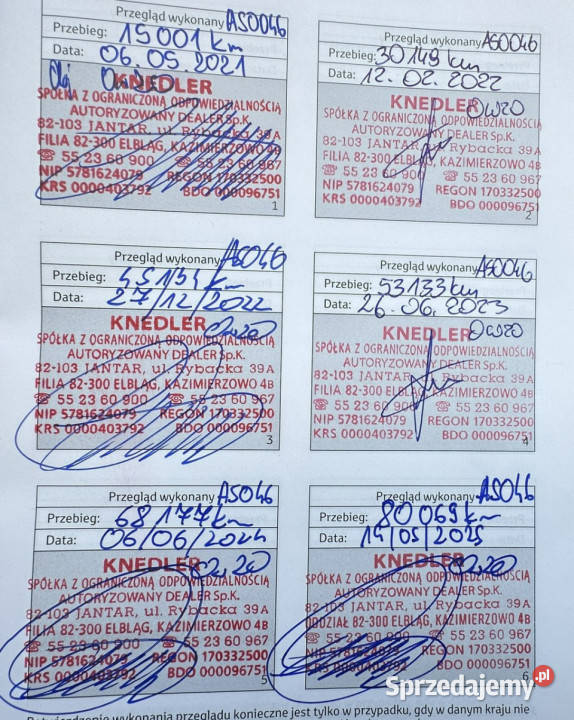 Przegląd wykonany ASO046
Przebieg: 15001 km
Data: 06.05.2021
KNEDLER
SPÓŁKA Z OGRANICZONĄ ODPOWIEDZIALNOŚCIĄ
AUTORYZOWANY DEALER Sp.K.
82-103 JANTAR, ul. Rybacka 39A
FILIA 82-300 ELBLĄG, KAZIMIERZOWO
☎ 55 23 60 900 ☎ 55 23 60 967
NIP 5781624079 REGON 170332500
KRS 0000403792 BDO 000096751
1
Przegląd wykonany ASO046
Przebieg: 30149 km
Data: 12.02.2022
KNEDLER 0W20
SPÓŁKA Z OGRANICZONĄ ODPOWIEDZIALNOŚCIĄ
AUTORYZOWANY DEALER Sp.K.
82-103 JANTAR, ul. Rybacka 39A
FILIA 82-300 ELBLĄG, KAZIMIERZOWO 4B
☎ 55 23 60 900 ☎ 55 23 60 967
NIP 5781624079 REGON 170332500
KRS 0000403792 BDO 000096751
2
Przegląd wykonany ASO46
Przebieg: km
Data: 27/12/2022
KNEDLER 0W20
SPÓŁKA Z OGRANICZONĄ ODPOWIEDZIALNOŚCIĄ
AUTORYZOWANY DEALER Sp.K.
82-103 JANTAR, ul. Rybacka 39A
FILIA 82-300 ELBLĄG, KAZIMIERZOWO 4B
☎ 55 23 60 900 ☎ 55 23 60 967
NIP 5781624079 REGON 170332500
KRS 0000403792 BDO 000096751
3
Przegląd wykonany ASO046
Przebieg: 53133 km
Data: 26.06.2023
KNEDLER 0W20
SPÓŁKA Z OGRANICZONĄ ODPOWIEDZIALNOŚCIĄ
AUTORYZOWANY DEALER Sp.K.
82-103 JANTAR, ul. Rybacka 39A
FILIA 82-300 ELBLĄG, KAZIMIERZOWO 4B
☎ 55 23 60 900 ☎ 55 23 60 967
NIP 5781624079 REGON 170332500
KRS 0000403792 BDO 000096751
4
Przegląd wykonany ASO46
Przebieg: 68177 km
Data: 06/06/2024
KNEDLER 0W20
SPÓŁKA Z OGRANICZONĄ ODPOWIEDZIALNOŚCIĄ
AUTORYZOWANY DEALER Sp.K.
82-103 JANTAR, ul. Rybacka 39A
FILIA 82-300 ELBLĄG, KAZIMIERZOWO 4B
☎ 55 23 60 900 ☎ 55 23 60 967
NIP 5781624079 REGON 170332500
KRS 0000403792 BDO 000096751
5
Przegląd wykonany ASO46
Przebieg: 80069 km
Data: 14/05/2025
KNEDLER 0W20
SPÓŁKA Z OGRANICZONĄ ODPOWIEDZIALNOŚCIĄ
AUTORYZOWANY DEALER Sp.K.
82-103 JANTAR, ul. Rybacka 39A
ODDZIAŁ 82-300 ELBLĄG, KAZIMIERZOWO 4B
☎ 55 23 60 900 ☎ 55 23 60 967
NIP 5781624079 REGON 170332500
KRS 0000403792 BDO 000096751
6
Potwierdzenie wykonania przeglądu konieczne jest tylko w przypadku, gdy w danym kraju nie
Sprzedajemy.pl